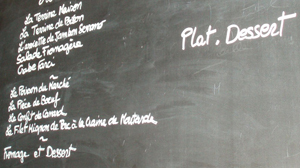 La Terrine Maison
La Terrine de Bidon
L'assiette de Jambon Serrano
Salade Fromagère
Crabe Farci
Le Poisson du Marché
La Pièce de Boeuf
Le Confit de Canard
Le Filet Mignon de Porc à la Creme de
~
Fromage et Dessert
Plat. Dessert